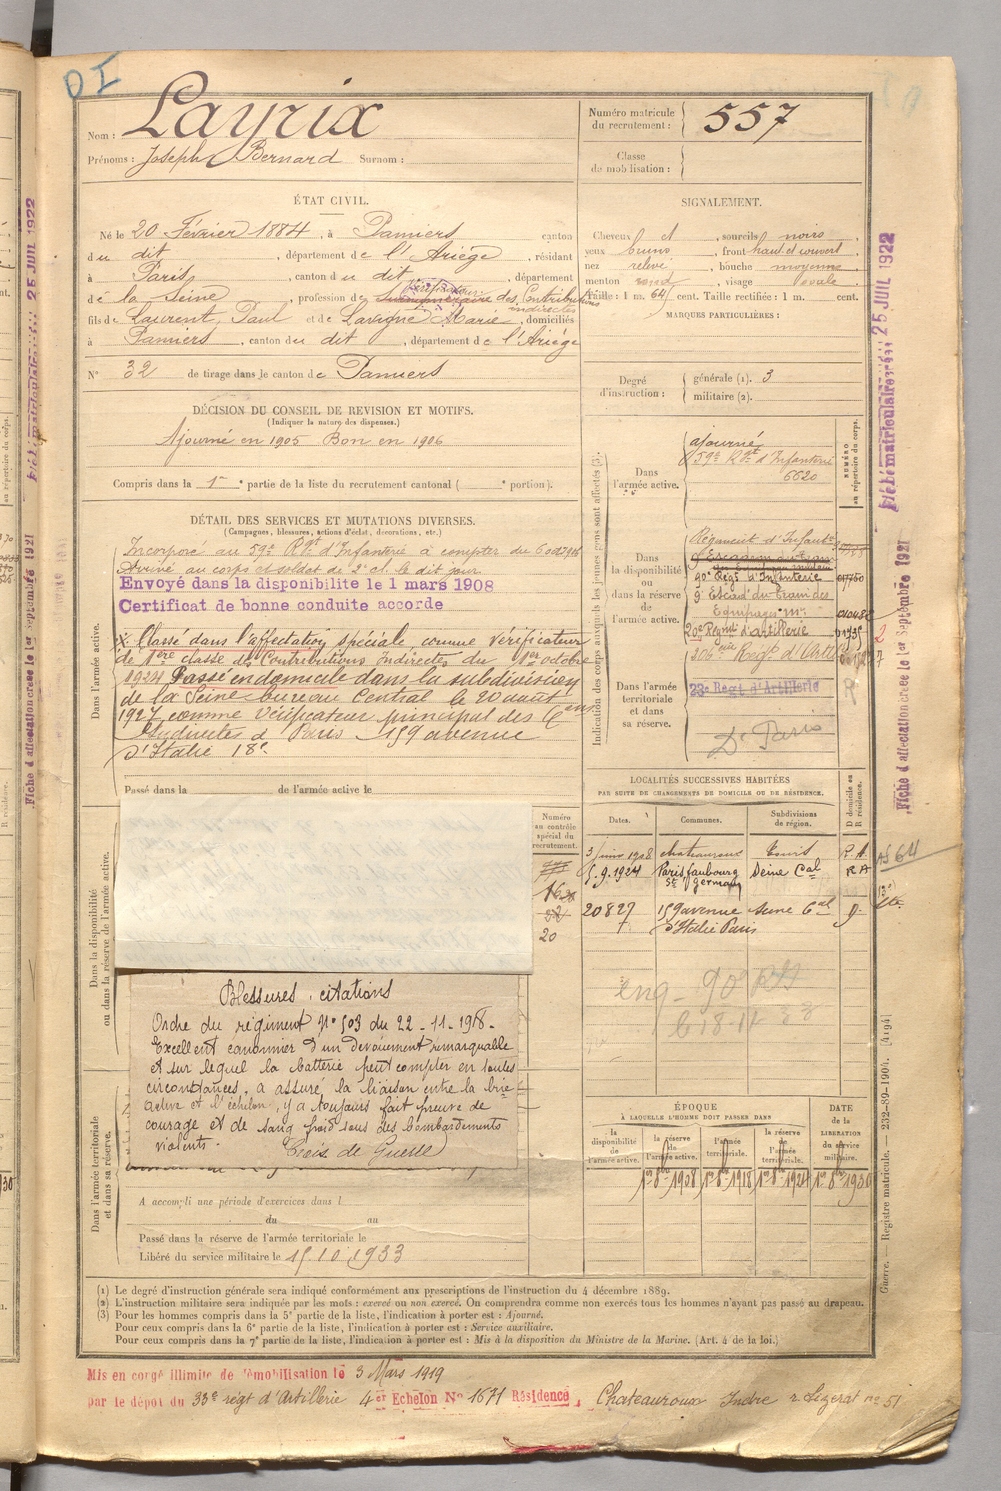 DI
Nom : Layrix
Prénoms : Joseph Bernard Surnom :
Numéro matricule du recrutement : 557
Classe de mobilisation :
ÉTAT CIVIL.
Né le 20 Février 1884, à Pamiers canton
du dit, département de l'Ariège, résidant
à Paris, canton du dit, département
de la Seine, profession de Surnuméraire des Contributions indirectes
fils de Laurent, Paul et de Lavigne Marie, domiciliés
à Pamiers, canton du dit, département de l'Ariège
N° 32 de tirage dans le canton de Pamiers
SIGNALEMENT.
Cheveux et, sourcils noirs
yeux bruns, front haut et ouvert
nez relevé, bouche moyenne
menton rond, visage ovale
Taille : 1 m. 64 cent. Taille rectifiée : 1 m. cent.
MARQUES PARTICULIÈRES :
Degré d'instruction : générale (1). 3
militaire (2).
DÉCISION DU CONSEIL DE REVISION ET MOTIFS.
(Indiquer la nature des dispenses.)
Ajourné en 1905 Bon en 1906
Compris dans la 1re partie de la liste du recrutement cantonal ( e portion).
DÉTAIL DES SERVICES ET MUTATIONS DIVERSES.
(Campagnes, blessures, actions d'éclat, décorations, etc.)
Incorporé au 59e Rgt d'Infanterie à compter du 6 oct 1906
Arrivé au corps et soldat de 2e cl. le dit jour
Envoyé dans la disponibilite le 1 mars 1908
Certificat de bonne conduite accorde
Classé dans l'affectation spéciale comme Vérificateur
de 1ère classe des Contributions Indirectes du 1er octobre
1924 Passé en domicile dans la subdivision
de la Seine bureau Central le 20 août
1927 comme Vérificateur principal des Cons
Indirectes à Paris 159 avenue
d'Italie 18e
Dans l'armée active.
Passé dans la de l'armée active le
Indication des corps auxquels les jeunes gens sont affectés (3).
NUMÉRO au répertoire du corps.
Dans l'armée active.
ajourné
59e Rgt d'Infanterie
6620
Dans la disponibilité ou dans la réserve de l'armée active.
Régiment d'Infante
90e Régt d'Infanterie
9e Escad. du Train des
Equipages m.
20e Régmt d'artillerie
206e Régt d'Artie
Dans l'armée territoriale et dans sa réserve.
23e Régt d'Artillerie
Dt Paris
LOCALITÉS SUCCESSIVES HABITÉES
PAR SUITE DE CHANGEMENTS DE DOMICILE OU DE RÉSIDENCE.
Dates. Communes. Subdivisions de région. D domicile ou R résidence.
3 juin 1908 Chateauroux R.A.
5.9.1924 Paris faubourg St Germain Seine Cal RA
20 8 27 159 avenue d'Italie Paris Seine Cal D.
Numéro au contrôle spécial du recrutement.
20
Dans la disponibilité ou dans la réserve de l'armée active.
Blessures, citations
Ordre du régiment N° 503 du 22-11-1918-
Excellent canonnier d'un dévouement remarquable
et sur lequel la batterie peut compter en toutes
circonstances, a assuré la liaison entre la brie
active et l'échelon, y a toujours fait preuve de
courage et de sang froid sous des bombardements
violents. Croix de Guerre
ÉPOQUE
À LAQUELLE L'HOMME DOIT PASSER DANS
la disponibilité de l'armée active. la réserve de l'armée active. l'armée territoriale. la réserve de l'armée territoriale. DATE de la LIBÉRATION du service militaire.
1er 8bre 1908 1er 8bre 1918 1er 8bre 1924 1er 8bre 1930
Dans l'armée territoriale et dans sa réserve.
A accompli une période d'exercices dans l
du au
Passé dans la réserve de l'armée territoriale le
Libéré du service militaire le 15.10.1933
(1) Le degré d'instruction générale sera indiqué conformément aux prescriptions de l'instruction du 4 décembre 1889.
(2) L'instruction militaire sera indiquée par les mots : exercé ou non exercé. On comprendra comme non exercés tous les hommes n'ayant pas passé au drapeau.
(3) Pour les hommes compris dans la 5e partie de la liste, l'indication à porter est : Ajourné.
Pour ceux compris dans la 6e partie de la liste, l'indication à porter est : Service auxiliaire.
Pour ceux compris dans la 7e partie de la liste, l'indication à porter est : Mis à la disposition du Ministre de la Marine. (Art. 4 de la loi.)
Mis en congé illimité de démobilisation le 3 Mars 1919
par le dépôt du 33e régt d'Artillerie 4e Echelon N° 1671 Résidence Chateauroux Indre
Guerre. — Registre matricule. — 232-89-1904. [4194]
Fiche d'affectation creee le 1er Septembre 1921
25 JUIL 1922